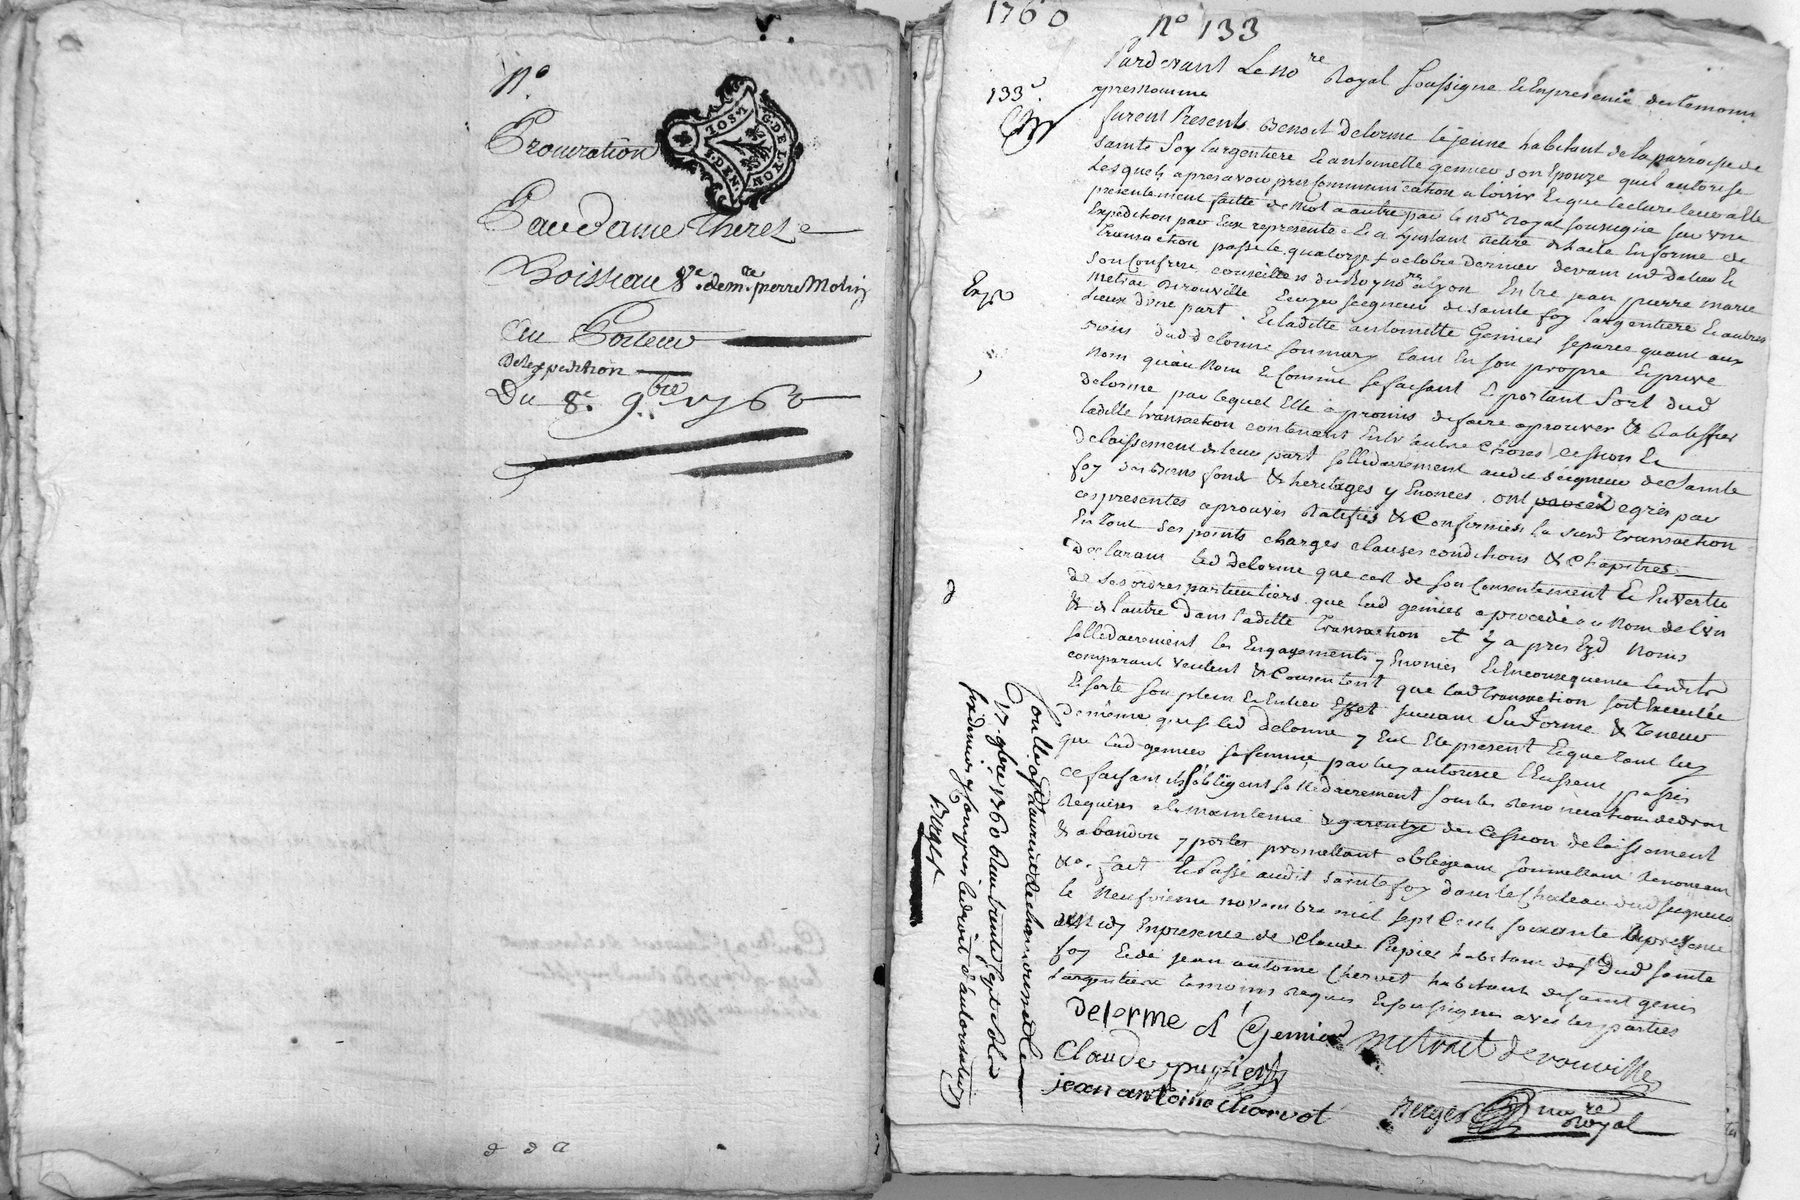 n°
Procuration
G. DE LYON
1. SOL
4. DEN.
Par Dame Therese
Boisseau Ve. de mre. pierre Molin
au Porteur
De lexpedition
Du 8e. 9bre 1760
1760 n° 133
133e.
Pardevant Le nore Royal Soussigné & Enpresence des temoins
apres nommés
furent Presents Benoit delorme le jeune habitant de la parroisse de
Sainte Foy largentiere & antoinette genier son Epouze quil autorise
Lesquels apres avoir pris Communication a loisir & que lecture leur a Eté
presentement faitte de mot a autre par le nore Royal soussigné sur une
Expedition par Eux representée & a Linstant retirée de lacte En forme de
transaction passé le quatorze octobre dernier devant Me dalier &
son Confrere conseillers du Roy nores alyon Entre jean pierre marie
metrat De rouville Ecuyer seigneur de Sainte foy largentiere & autres
Lieux dune part. & laditte antoinette Genier separée quant aux
biens dud delorme son mary tant En son propre & privé
Nom quau Nom & Comme se faisant & portant Fort dud
delorme par lequel Elle a promis de faire aprouver & Ratiffier
laditte transaction contenant Entre autre Choses cession &
delaissement de leur part sollidairement audit seigneur de Sainte
foy des Biens fonds & heritages y Enoncés. ont de gré par
ces presentes aprouvés Ratifiés & Confirmées la susd transaction
En Tout ses points charges clauses conditions & Chapitres
Declarant led delorme que cest de son Consentement & En vertu
de ses ordres particuliers que lad genier a procédé au Nom de lun
& de lautre dans laditte transaction et y a pris Esd Noms
sollidairement les Engagements y Enoncés & Enconsequence lesdits
comparant veulent & Consentent que lad transaction soit Executée
& sorte son plein & Entier Effet suivant Sa forme & Teneur
De même que si led delorme y Eut Eté present & que tant luy
que lad genier sa femme par luy autorisée l'Eussent passés
Ce faisant ils s'obligent sollidairement sous les Renonciations de droit
Requises a la maintenue & garentye des Cession delaissement
& abandon y portés promettant obligeant soumettant Renonceant
&a. fait & Passé audit Sainte foy dans le Chateau dud seigneur
le Neufvieme novembre mil sept Cent soixante
En presence de Claude Papier habitant dud Sainte
foy & de jean antoine Chervet habitant de saint genis
Largentiere temoins Requis & soussignés avec les parties
Delorme A Genier metrat de rouville
Claude pupier
jean antoine charvot
Berger no re Royal
Exp
17. 9bre 1760